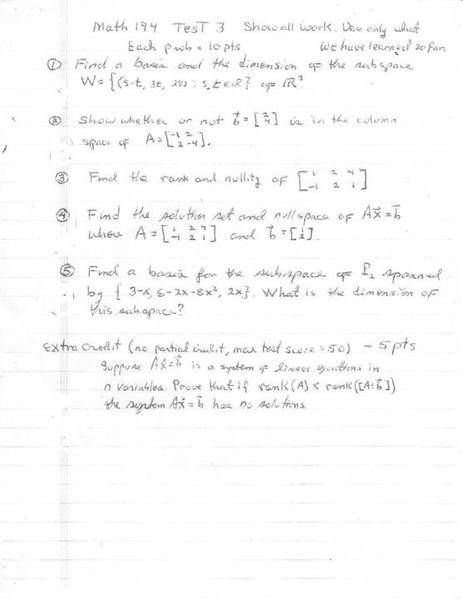 Math 194 Test 3 Show all work. Use only what
Each prob = 10 pts we have learned so far.
① Find a basis and the dimension of the subspace
W = {(s-t, 3t, 2s) : s, t ∈ R} of R³.
② Show whether or not b⃗ = is in the column
space of A = [-1 2; 2 -4].
③ Find the rank and nullity of [1 2 4; -1 2 1]
④ Find the solution set and nullspace of Ax⃗ = b⃗
where A = and b⃗ =
⑤ Find a basis for the subspace of P₂ spanned
by { 3-x, 6-2x-8x², 2x}. What is the dimension of
this subspace?
Extra Credit (no partial credit, max test score = 50) - 5 pts
Suppose Ax⃗ = b⃗ is a system of linear equations in
n variables. Prove that if rank(A) < rank([A⋮b⃗])
the system Ax⃗ = b⃗ has no solutions